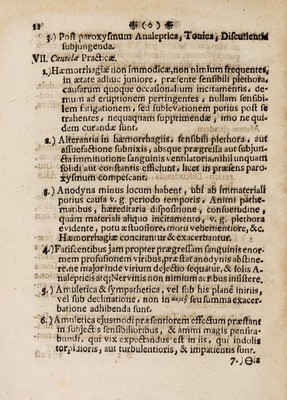 22 (o)
5.) Post paroxysmum Analeptica, Tonica, Discutientia
subjungenda.
VII. Cautelæ Practicæ.
1.) Hæmorrhagiæ non immodicæ, non nimium frequentes,
in ætate adhuc juniore, præsente sensibili plethora,
causarum quoque occasionalium incitamentis, de-
mum ad eruptionem pertingentes, nullam sensibi-
lem fatigationem, sed sublevationem potius post se
trahentes, nequaquam supprimendæ, imo ne qui-
dem curandæ sunt.
2.) Alterantia in hæmorrhagiis, sensibili plethora, aut
assuefactione subnixis, absque prægressa aut subjun-
cta imminutione sanguinis ventilatoria, nihil unquam
solidi aut constantis efficiunt, licet in præsens paro-
xysmum compescant.
3.) Anodyna minus locum habent, ubi ab immateriali
potius causa v. g. periodo temporis, Animi pathe-
matibus, hæreditaria dispositione, consuetudine,
quàm materiali aliquo incitamento, v. g. plethora
evidente, potu æstuosiore, motu vehementiore, &c.
Hæmorrhagiæ concitantur & exacerbantur.
4.) Fatiscentibus jam propter prægressam sanguinis enor-
mem profusionem viribus, præstat anodynis abstine-
re, ne major inde virium dejectio sequatur, & solis A-
nalepticis atq; Nervinis non nimium acribus insistere.
5.) Amuletica & sympathetica, vel sub his planè initiis,
vel sub declinatione, non in seu summa exacer-
batione adhibenda sunt.
6.) Amuletica ejusmodi præsentiorem effectum præstant
in subjectis sensibilioribus, & animi magis pensita-
bundi, qui vix expectandus est in iis, qui indolis
torpidioris, aut turbulentioris, & impatientis sunt.
7.)